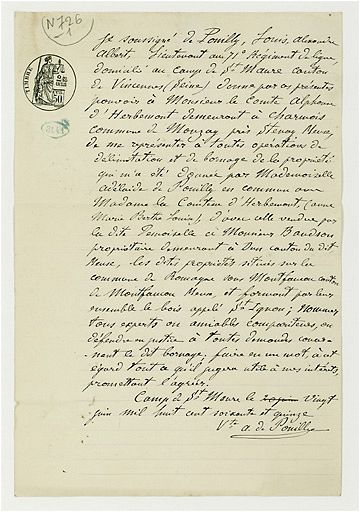 N 726
1
TIMBRE
50
Je soussigné de Pouilly, Louis, alexandre
Albert, Lieutenant au 71e Régiment de ligne
domicilié au camp de St Maure canton
de Vincennes (Seine) donne par ces présentes
pouvoir à Monsieur le Comte Alphonse
d'Herbemont demeurant à Charmois
commune de Mouzay près Stenay Meuse,
de me représenter à toutes opérations de
délimitation et de bornage de la propriété
qui m'a été par Mademoiselle
Adélaïde de Pouilly en commun avec
Madame la Comtesse d'Herbemont (
Marie Berthe Louise), d'avec celle vendue par
la dite Demoiselle à Monsieur Baudson
propriétaire demeurant à Dun canton du dit
Meuse, les dites propriétés situées sur la
commune de Romagne sous Montfaucon canton
de Montfaucon Meuse, et formant par leur
ensemble le bois appelé St Ignon; Nommer
tous experts ou amiables compositeurs, en
défendre en justice à toutes demandes concer-
nant le dit bornage, faire en un mot, à cet
égard tout ce qu'il jugera utile à mes intérêts,
promettant l'agréer.
Camp de St Maure le vingt
juin mil huit cent soixante et quinze
Vte a. de Pouilly